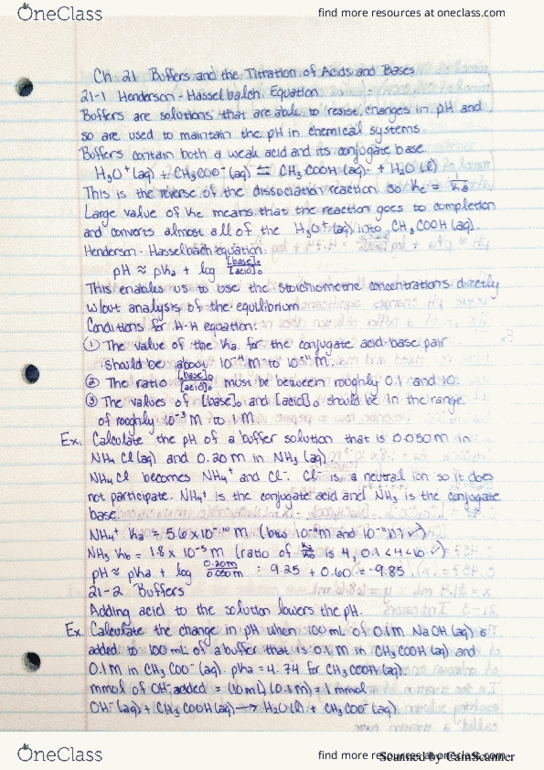 OneClass
find more resources at oneclass.com
Ch. 21 Buffers and the Titration of Acids and Bases
21-1 Henderson-Hasselbalch Equation
Buffers are solutions that are able to resist changes in pH and
so are used to maintain the pH in chemical systems.
Buffers contain both a weak acid and its conjugate base
H₃O⁺(aq) + CH₃COO⁻(aq) ⇆ CH₃COOH(aq) + H₂O(l)
This is the reverse of the dissociation reaction so Kc = 1/Ka
Large value of Kc means that the reaction goes to completion
and converts almost all of the H₃O⁺(aq) into CH₃COOH(aq).
Henderson-Hasselbach equation:
pH ≈ pKa + log [base]₀/[acid]₀
This enables us to use the stoichiometric concentrations directly
w/out analysis of the equilibrium
Conditions for H-H equation:
① The value of the Ka for the conjugate acid-base pair
should be about 10⁻⁴ M to 10⁻¹¹ M.
② The ratio [base]₀/[acid]₀ must be between roughly 0.1 and 10.
③ The values of [base]₀ and [acid]₀ should be in the range
of roughly 10⁻³ M to 1 M.
Ex. Calculate the pH of a buffer solution that is 0.050 M in
NH₄Cl(aq) and 0.20 M in NH₃(aq).
NH₄Cl becomes NH₄⁺ and Cl⁻. Cl⁻ is a neutral ion so it does
not participate. NH₄⁺ is the conjugate acid and NH₃ is the conjugate
base.
NH₄⁺ Ka = 5.6 x 10⁻¹⁰ M (btw 10⁻⁴ M and 10⁻¹¹ M ✓)
NH₃ Kb = 1.8 x 10⁻⁵ M (ratio of is 4, 0.1 < 4 < 10 ✓)
pH ≈ pKa + log 0.20M/0.050M = 9.25 + 0.60 = 9.85
21-2 Buffers
Adding acid to the solution lowers the pH.
Ex. Calculate the change in pH when 100 mL of 0.1 M NaOH(aq) is
added to 100 mL of a buffer that is 0.1 M in CH₃COOH(aq) and
0.1 M in CH₃COO⁻(aq). pKa = 4.74 for CH₃COOH(aq).
mmol of OH⁻ added = (10 mL)(0.1 M) = 1 mmol
OH⁻(aq) + CH₃COOH(aq) → H₂O(l) + CH₃COO⁻(aq)
OneClass
find more resources at oneclass.com
Scanned by CamScanner